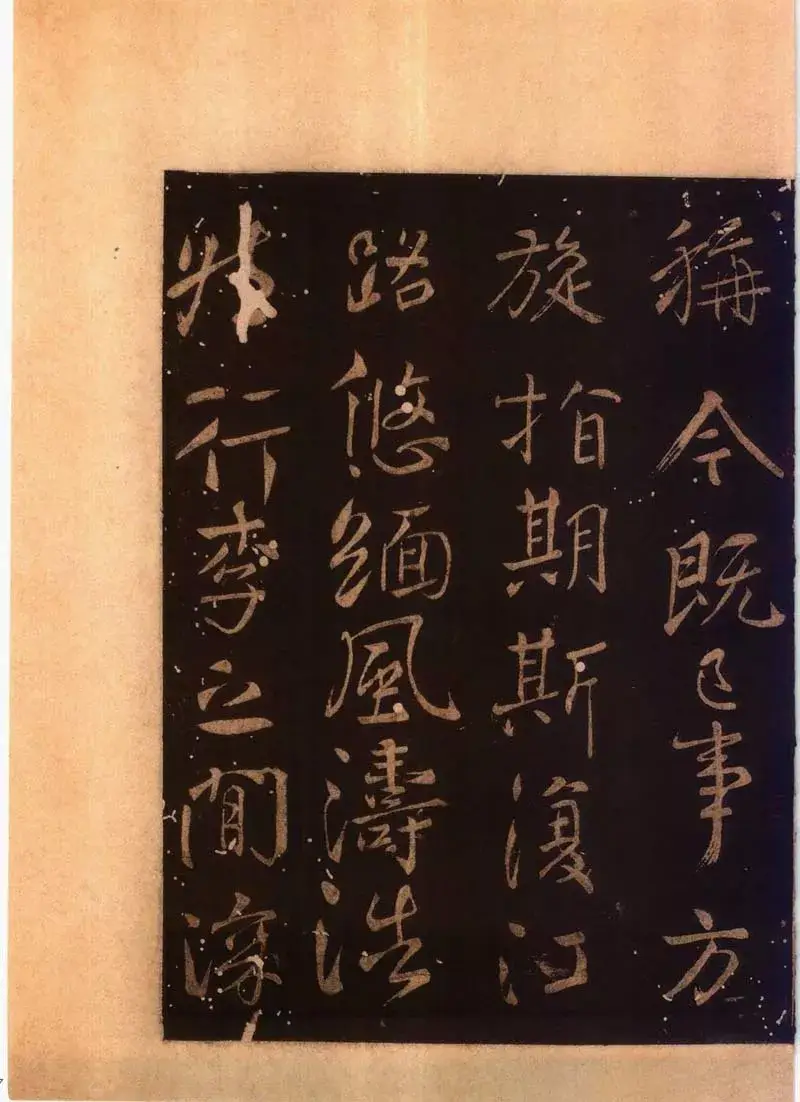 稱今既已事方
旋指期斯復江
路悠緬風濤浩
行李之間深